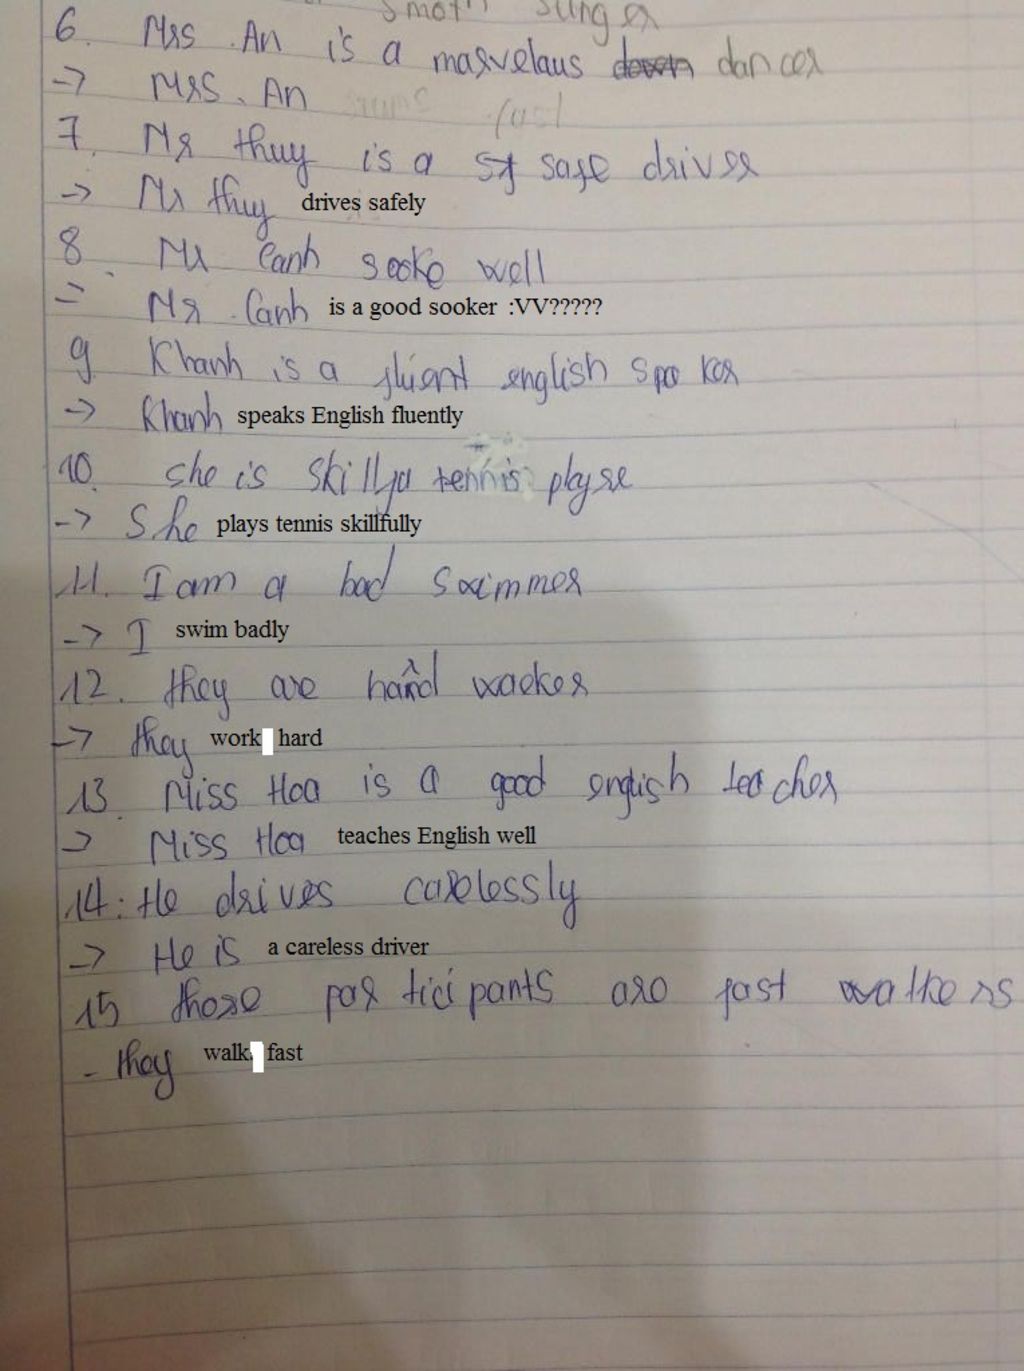 smoth singer
6. Mrs. An is a marvelaus dancer
-> Mrs. An
7. Mr thuy is a st safe driver
-> Mr thuy drives safely
8. Mr Canh scoke well
-> Mr. Canh is a good sooker :VV?????
9 Khanh is a fluent english spoker
-> Khanh speaks English fluently
10. she is skillfu tennis playse
-> She plays tennis skillfully
11. I am a bad swimmer
-> I swim badly
12. they are hard worker
-> they work hard
13. Miss Hoa is a good english teacher
-> Miss Hoa teaches English well
14: He drives carelessly
-> He is a careless driver
15 those participants are fast walkers
- they walk fast